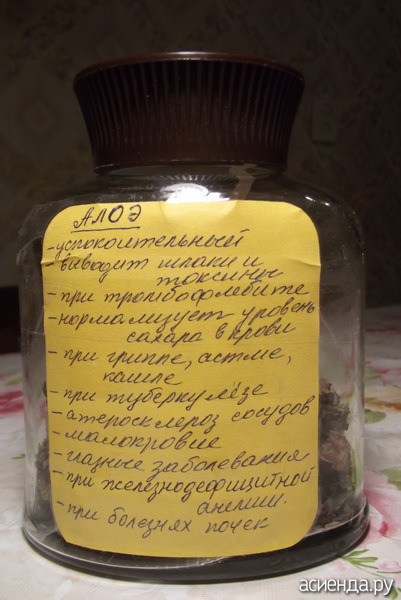 АЛОЭ
- успокоительный
- выводит шлаки и
токсины
- при тромбофлебите
- нормализует уровень
сахара в крови
- при гриппе, астме,
кашле
- при туберкулёзе
- атеросклероз сосудов
- малокровие
- глазные заболевания
- при железнодефицитной
анемии.
- при болезнях почек
асиенда.ру